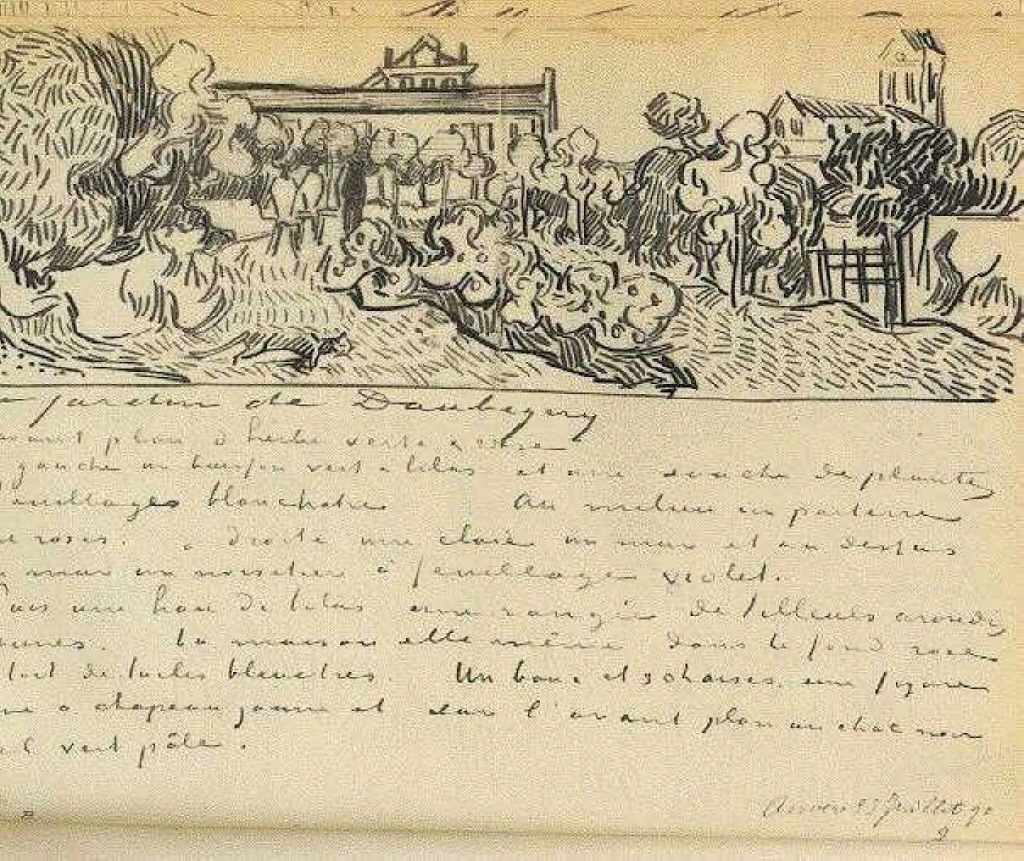 jardin de Daubigny
avant plan d'herbe verte & rose
gauche un buisson vert & lilas et une souche de plantes
feuillages blanchatres Au milieu un parterre
roses. à droite une claie un mur et au dessus
mur un noisetier à feuillage violet.
Puis une haie de lilas une rangée de tilleuls arrondis
jaunes. La maison elle même dans le fond rose
toit de tuiles bleuatres. Un banc et 3 chaises, une figure
à chapeau jaune et sur l'avant plan un chat noir
vert pâle.
Auvers 23 Juillet 90